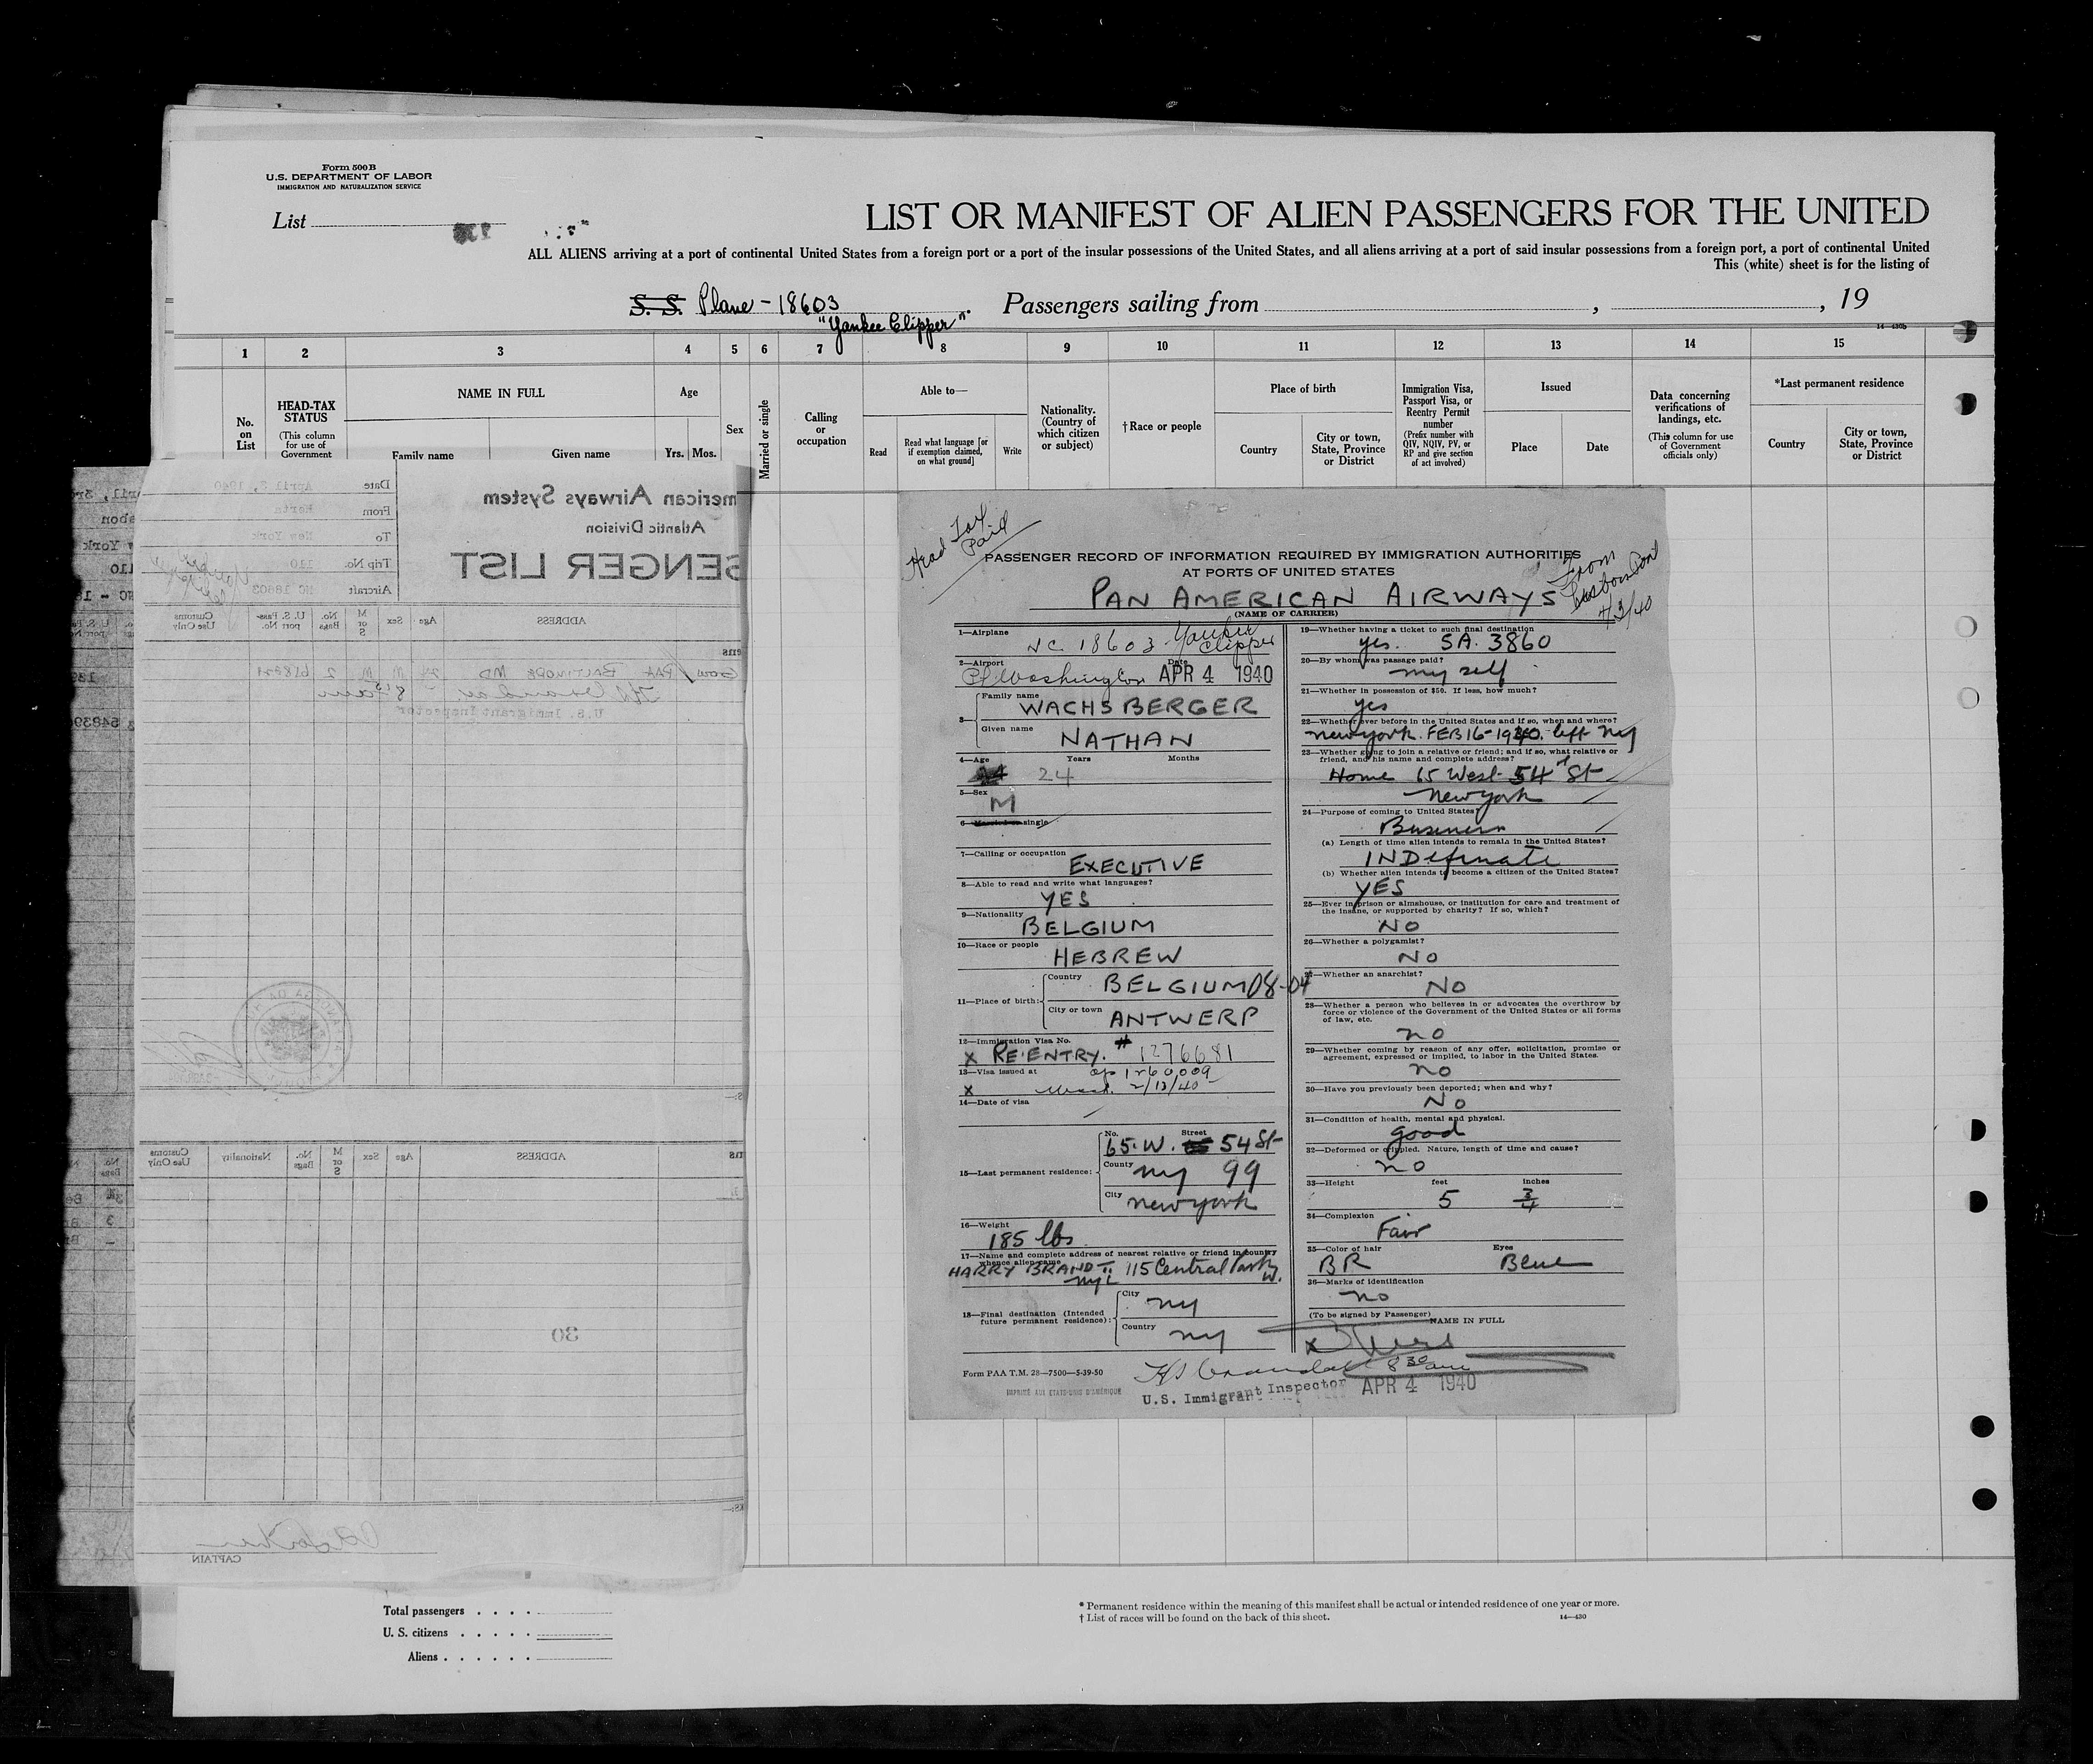 Form 500B
U.S. DEPARTMENT OF LABOR
IMMIGRATION AND NATURALIZATION SERVICE
List
LIST OR MANIFEST OF ALIEN PASSENGERS FOR THE UNITED
ALL ALIENS arriving at a port of continental United States from a foreign port or a port of the insular possessions of the United States, and all aliens arriving at a port of said insular possessions from a foreign port, a port of continental United
This (white) sheet is for the listing of
S. S. Plane - 18603
"Yankee Clipper".
Passengers sailing from , , 19
14—430b
1 2 3 4 5 6 7 8 9 10 11 12 13 14 15
No. on List
HEAD-TAX STATUS
(This column for use of Government
NAME IN FULL
Family name
Given name
Age
Yrs. Mos.
Sex
Married or single
Calling or occupation
Able to—
Read
Read what language [or if exemption claimed, on what ground]
Write
Nationality. (Country of which citizen or subject)
† Race or people
Place of birth
Country
City or town, State, Province or District
Immigration Visa, Passport Visa, or Reentry Permit number
(Prefix number with QIV, NQIV, PV, or RP and give section of act involved)
Issued
Place
Date
Data concerning verifications of landings, etc.
(This column for use of Government officials only)
*Last permanent residence
Country
City or town, State, Province or District
merican Airways System
Atlantic Division
SENGER LIST
Date April 3, 1940
From Horta
To New York
Trip No. 110
Aircraft NC 18603
Yankee Clipper
ADDRESS
Age
Sex
M or S
No. Bags
U. S. Passport No.
Customs Use Only
PAA BALTIMORE MD
U.S. Immigrant Inspector
ADDRESS
Age
Sex
M or S
No. Bags
Nationality
Customs Use Only
30
CAPTAIN
Head Tax
Paid
PASSENGER RECORD OF INFORMATION REQUIRED BY IMMIGRATION AUTHORITIES
AT PORTS OF UNITED STATES
From
4/3/40
PAN AMERICAN AIRWAYS
(NAME OF CARRIER)
1—Airplane NC 18603 Yankee Clipper
2—Airport Pt Washington Date APR 4 1940
3— Family name WACHSBERGER
Given name NATHAN
4—Age Years Months
24
5—Sex M
6—Married or single
7—Calling or occupation EXECUTIVE
8—Able to read and write what languages?
YES
9—Nationality BELGIUM
10—Race or people HEBREW
11—Place of birth: Country BELGIUM 08-04
City or town ANTWERP
12—Immigration Visa No.
X RE-ENTRY. # 1276681
13—Visa issued at 1260,009
X Wash. 2/13/40
14—Date of visa
15—Last permanent residence: No. Street
65. W. 54 St
County ny 99
City new york
16—Weight 185 lbs
17—Name and complete address of nearest relative or friend in country whence alien came
HARRY BRANDT 115 Central Park W.
NYC
18—Final destination (Intended future permanent residence): City ny
Country ny
Form PAA T.M. 28—7500—5-39-50
IMPRIMÉ AUX ETATS-UNIS D'AMÉRIQUE
19—Whether having a ticket to such final destination
yes. SA. 3860
20—By whom was passage paid?
my self
21—Whether in possession of $50. If less, how much?
yes
22—Whether ever before in the United States and if so, when and where?
new york. FEB 16-1940. left ny
23—Whether going to join a relative or friend; and if so, what relative or friend, and his name and complete address?
Home 65 West 54 St
New York
24—Purpose of coming to United States?
Business
(a) Length of time alien intends to remain in the United States?
INDefinate
(b) Whether alien intends to become a citizen of the United States?
YES
25—Ever in prison or almshouse, or institution for care and treatment of the insane, or supported by charity? If so, which?
NO
26—Whether a polygamist?
NO
27—Whether an anarchist?
NO
28—Whether a person who believes in or advocates the overthrow by force or violence of the Government of the United States or all forms of law, etc.
no
29—Whether coming by reason of any offer, solicitation, promise or agreement, expressed or implied, to labor in the United States.
no
30—Have you previously been deported; when and why?
NO
31—Condition of health, mental and physical.
good
32—Deformed or crippled. Nature, length of time and cause?
no
33—Height feet inches
5
34—Complexion Fair
35—Color of hair Eyes
BR Blue
36—Marks of identification
no
(To be signed by Passenger) NAME IN FULL
8 30 am
U.S. Immigrant Inspector APR 4 1940
Total passengers . . . .
U. S. citizens . . . . .
Aliens . . . . . .
* Permanent residence within the meaning of this manifest shall be actual or intended residence of one year or more.
† List of races will be found on the back of this sheet.
14—430